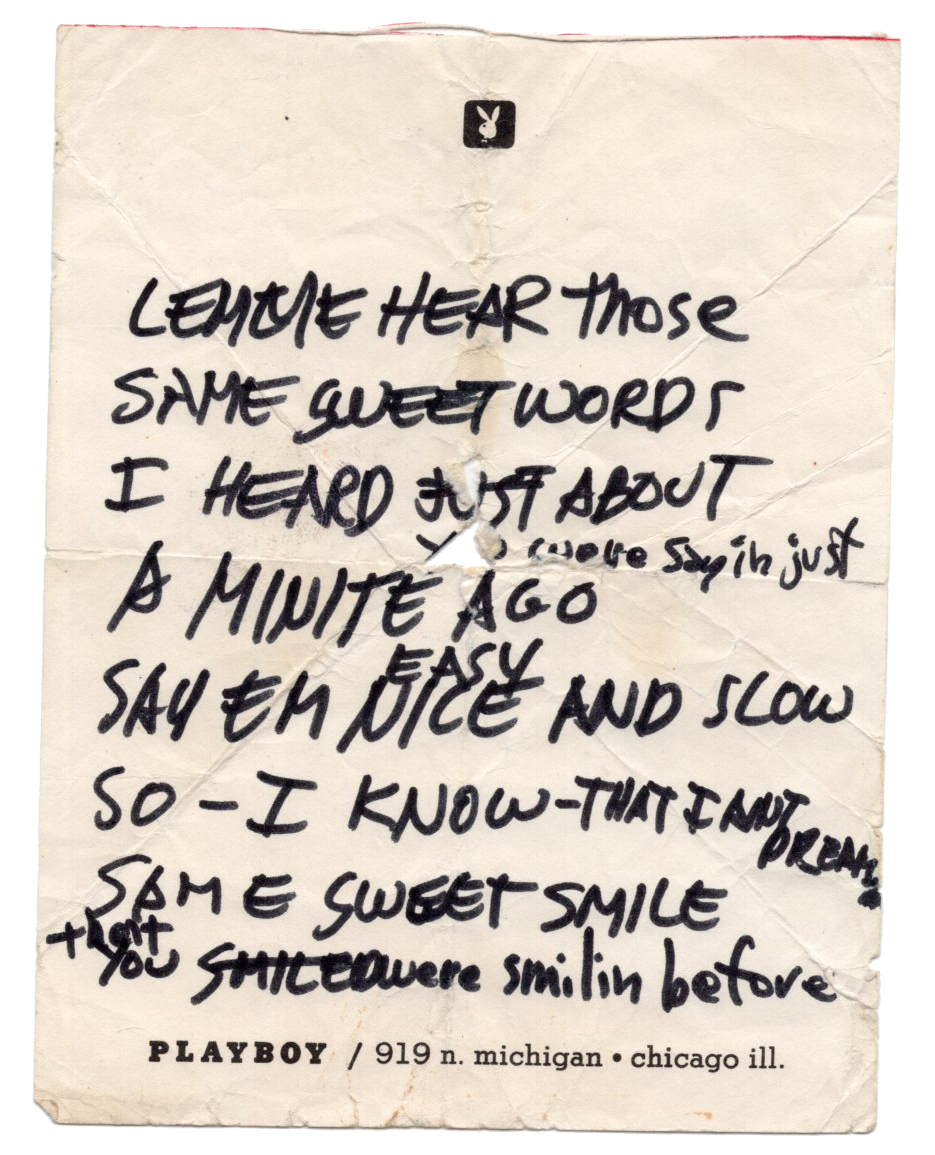 LEMME HEAR those
SAME SWEET WORDS
I HEARD JUST ABOUT
were sayin just
A MINITE AGO
EASY
SAY EM NICE AND SLOW
SO – I KNOW – THAT I AINT
DREAM
SAME SWEET SMILE
that
YOU SMILED were smilin before
PLAYBOY / 919 n. michigan • chicago ill.